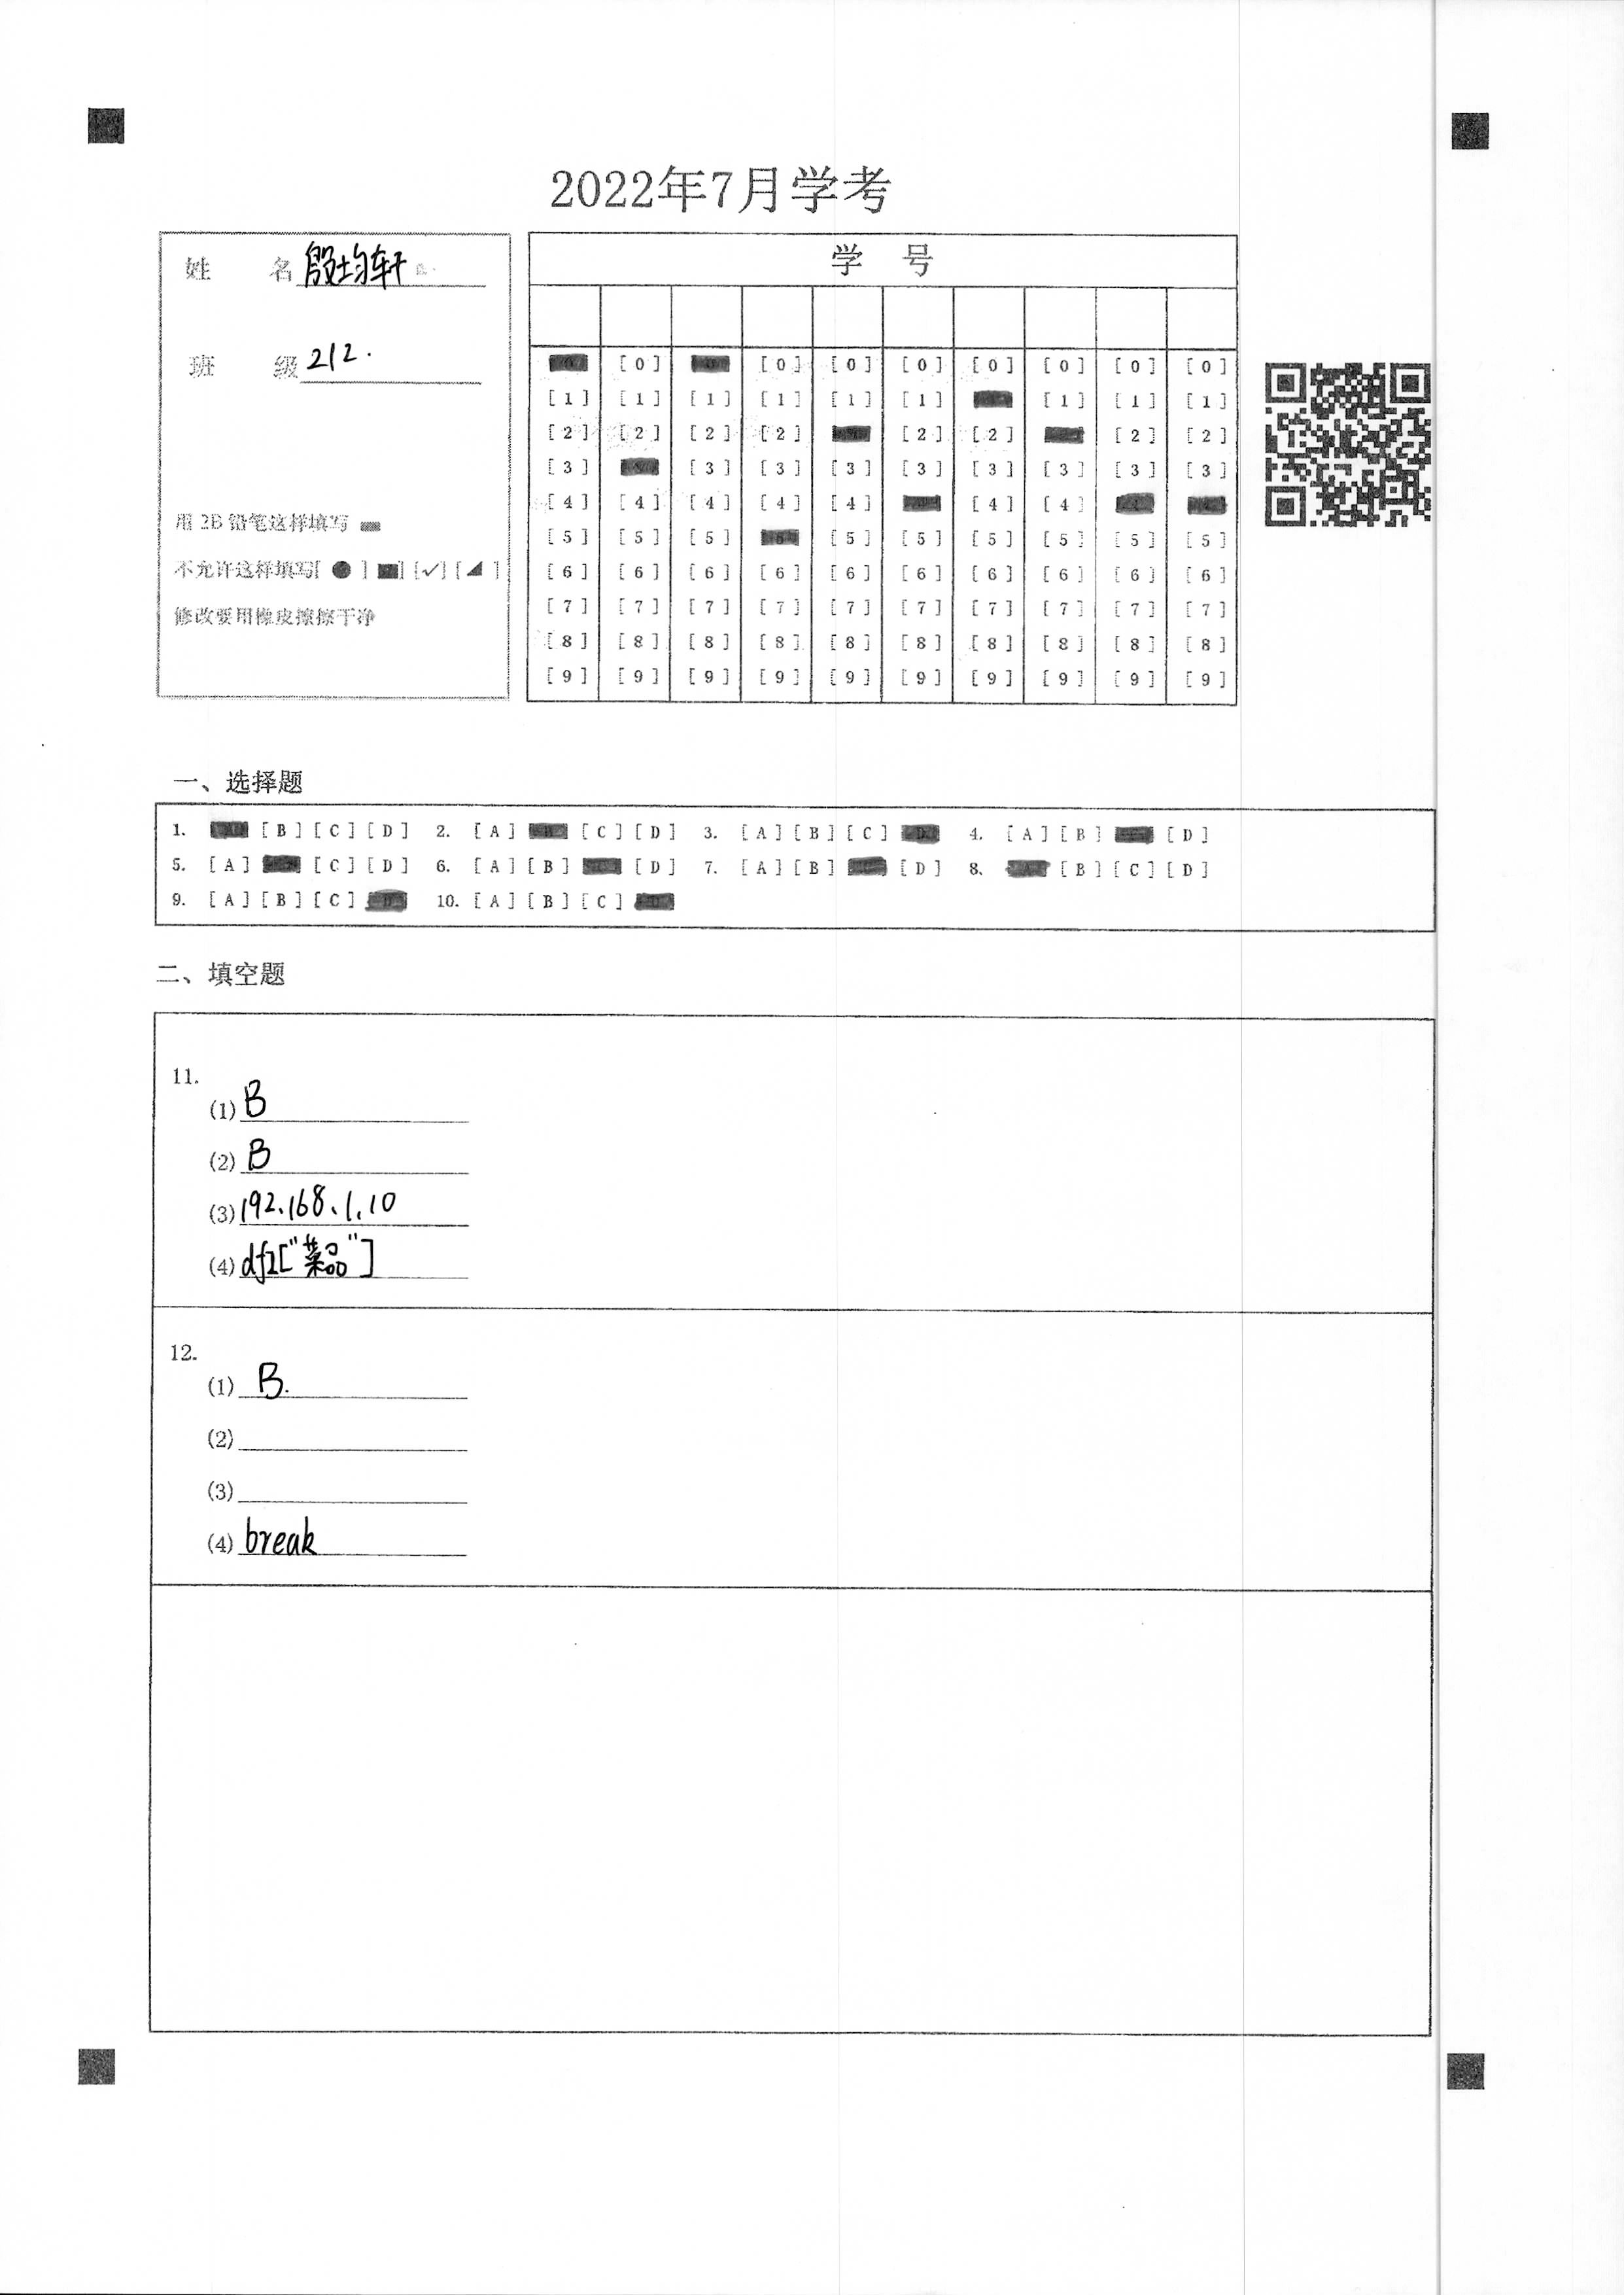 2022年7月学考
姓 名 殷均轩
班 级 212.
用 2B 铅笔这样填写
不允许这样填写[ ● ] [■] [✓] [◢ ]
修改要用橡皮擦擦干净
学 号
[0] [0] [0] [0] [0] [0] [0] [0]
[1] [1] [1] [1] [1] [1] [1] [1] [1]
[2] [2] [2] [2] [2] [2] [2] [2]
[3] [3] [3] [3] [3] [3] [3] [3] [3]
[4] [4] [4] [4] [4] [4] [4]
[5] [5] [5] [5] [5] [5] [5] [5] [5]
[6] [6] [6] [6] [6] [6] [6] [6] [6] [6]
[7] [7] [7] [7] [7] [7] [7] [7] [7] [7]
[8] [8] [8] [8] [8] [8] [8] [8] [8] [8]
[9] [9] [9] [9] [9] [9] [9] [9] [9] [9]
一、选择题
1. [B] [C] [D] 2. [A] [C] [D] 3. [A] [B] [C] 4. [A] [B] [D]
5. [A] [C] [D] 6. [A] [B] [D] 7. [A] [B] [D] 8. [B] [C] [D]
9. [A] [B] [C] 10. [A] [B] [C]
二、填空题
11.
(1) B
(2) B
(3) 192.168.1.10
(4) df1["菜品"]
12.
(1) B.
(2)
(3)
(4) break